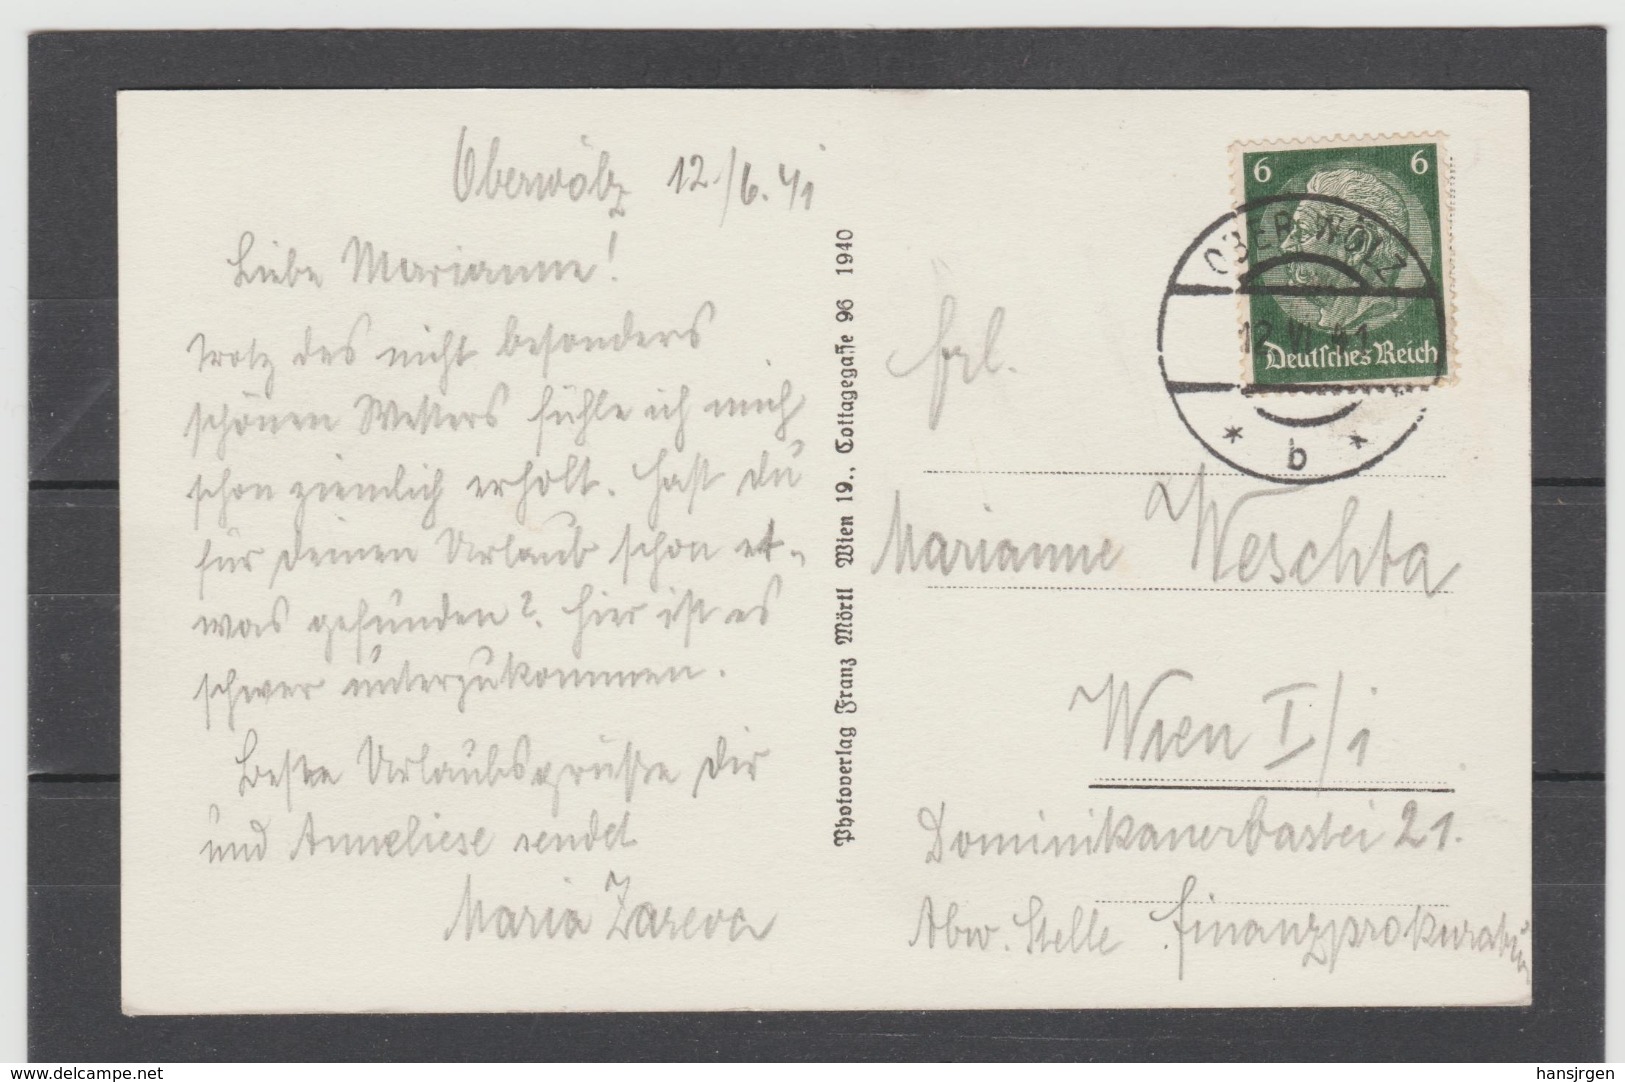 Oberwölz 12./6.41
Liebe Marianne!
trotz des nicht besonders
schönen Wetters fühle ich mich
schon ziemlich erholt. Hast Du
für Deinen Urlaub schon et-
was gefunden? Hier ist es
schwer unterzukommen.
Beste Urlaubsgrüße Dir
und Anneliese sendet
Maria
Photoverlag Franz Mörtl Wien 19., Cottagegasse 96 1940
6 6
Deutsches Reich
OBERWÖLZ
12.VI.41
* b *
Frl.
Marianne Weschta
Wien I/1
Dominikanerbastei 21.
Abw. Stelle Finanzprokuratur
www.delcampe.net
hansjrgen